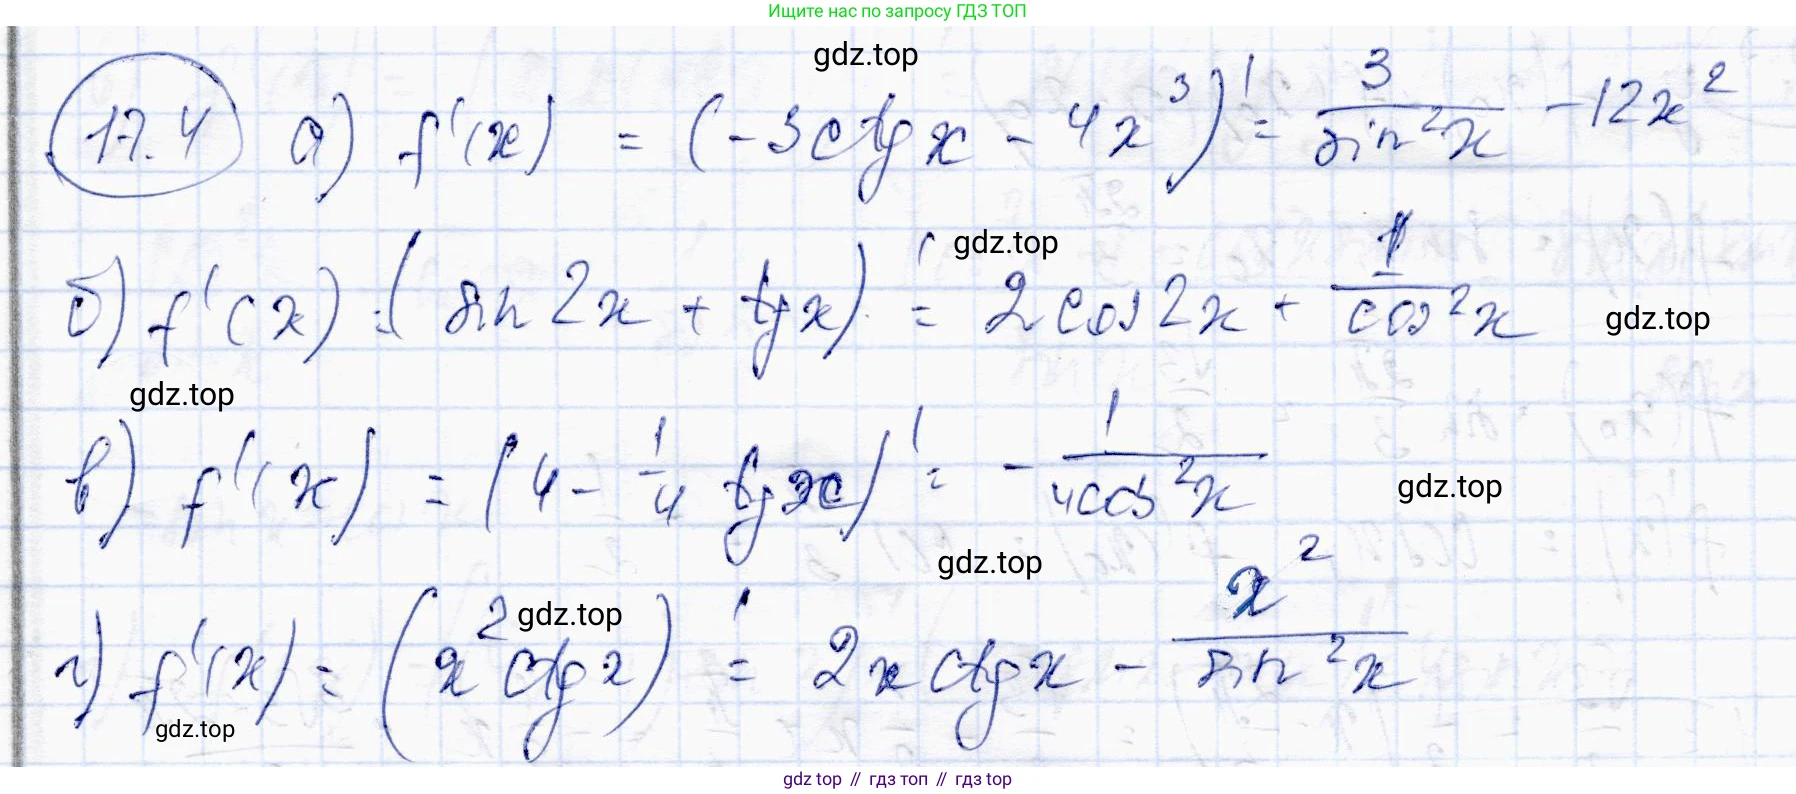 Ищите нас по запросу ГДЗ ТОП
gdz.top
17.4 а) f'(x) = (-3ctgx - 4x³)' = 3/sin²x - 12x²
gdz.top
б) f'(x) = (sin2x + tgx)' = 2cos2x + 1/cos²x
gdz.top
gdz.top
в) f'(x) = (4 - 1/4 tgx)' = - 1/4cos²x
gdz.top
gdz.top
gdz.top
г) f'(x) = (x²ctgx)' = 2xctgx - x²/sin²x
gdz.top
gdz top // гдз топ // гдз top